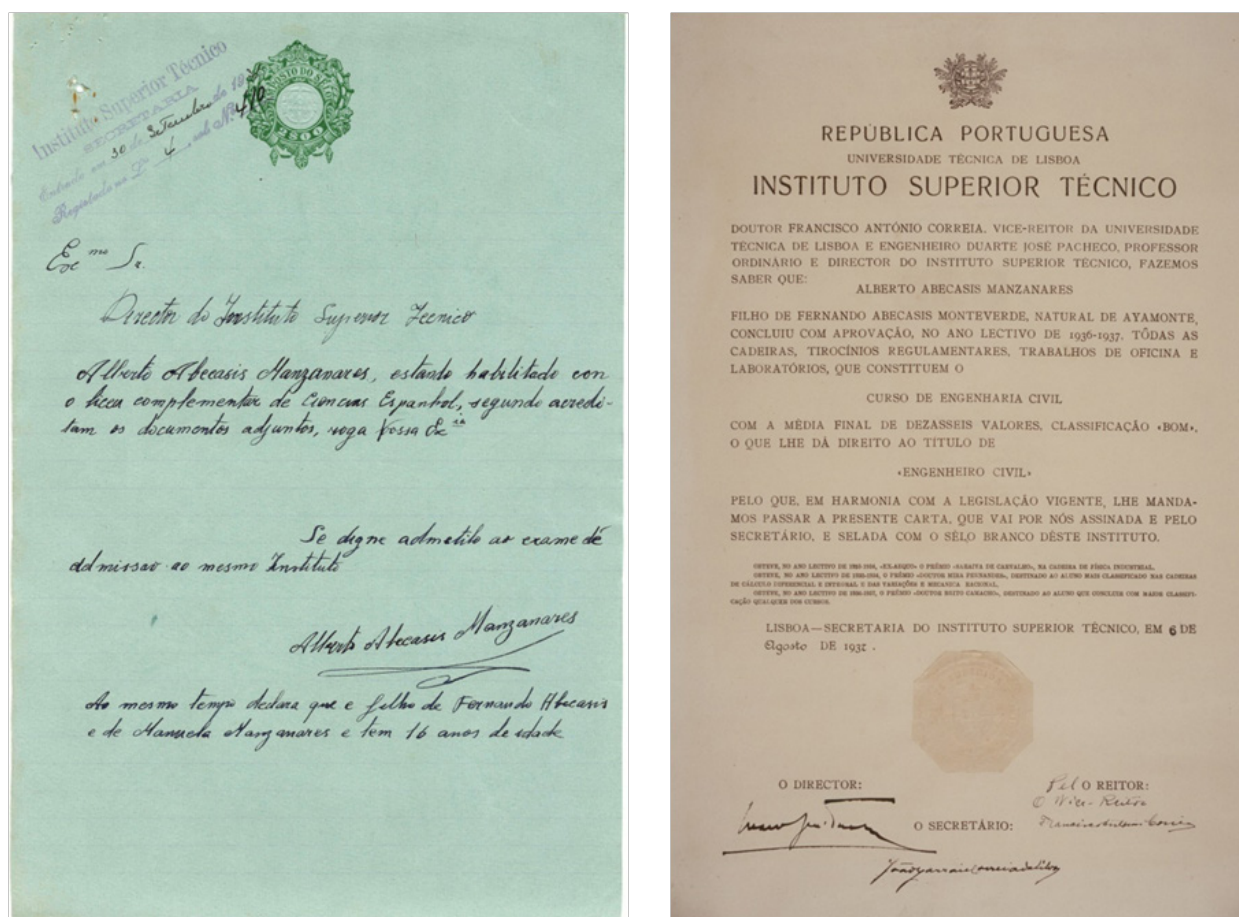 Instituto Superior Técnico
SECRETARIA
Entrada em 30 de Setembro de 19
Registado no L.º 4 sob N.º 410
IMPOSTO DO SELO
Exmo Sr.
Director do Instituto Superior Tecnico
Alberto Abecasis Manzanares, estando habilitado con
o liceu complementar de Ciencias Espanhol, segundo acredi-
tam os documentos adjuntos, roga Vossa Excia
Se digne admetilo ao exame de
admissao ao mesmo Instituto
Alberto Abecasis Manzanares
Ao mesmo tempo declara que e filho de Fernando Abecasis
e de Manuela Manzanares e tem 16 anos de idade
REPÚBLICA PORTUGUESA
UNIVERSIDADE TÉCNICA DE LISBOA
INSTITUTO SUPERIOR TÉCNICO
DOUTOR FRANCISCO ANTÓNIO CORREIA, VICE-REITOR DA UNIVERSIDADE
TÉCNICA DE LISBOA E ENGENHEIRO DUARTE JOSÉ PACHECO, PROFESSOR
ORDINÁRIO E DIRECTOR DO INSTITUTO SUPERIOR TÉCNICO, FAZEMOS
SABER QUE:
ALBERTO ABECASIS MANZANARES
FILHO DE FERNANDO ABECASIS MONTEVERDE, NATURAL DE AYAMONTE,
CONCLUIU COM APROVAÇÃO, NO ANO LECTIVO DE 1936-1937, TÔDAS AS
CADEIRAS, TIROCÍNIOS REGULAMENTARES, TRABALHOS DE OFICINA E
LABORATÓRIOS, QUE CONSTITUEM O
CURSO DE ENGENHARIA CIVIL
COM A MÉDIA FINAL DE DEZASSEIS VALORES, CLASSIFICAÇÃO «BOM»,
O QUE LHE DÁ DIREITO AO TÍTULO DE
«ENGENHEIRO CIVIL»
PELO QUE, EM HARMONIA COM A LEGISLAÇÃO VIGENTE, LHE MANDA-
MOS PASSAR A PRESENTE CARTA, QUE VAI POR NÓS ASSINADA E PELO
SECRETÁRIO, E SELADA COM O SÊLO BRANCO DÊSTE INSTITUTO.
OBTEVE, NO ANO LECTIVO DE «EX-AEQUO» O PRÉMIO «SARAIVA DE CARVALHO», NA CADEIRA DE FÍSICA INDUSTRIAL.
OBTEVE, NO ANO LECTIVO DE O PRÉMIO «DOUTOR MIRA FERNANDES», DESTINADO AO ALUNO MAIS CLASSIFICADO NAS CADEIRAS
DE CÁLCULO DIFERENCIAL E INTEGRAL E DAS VARIAÇÕES E MECANICA RACIONAL.
OBTEVE, NO ANO LECTIVO DE 1936-1937, O PRÉMIO «DOUTOR BRITO CAMACHO», DESTINADO AO ALUNO QUE CONCLUIR COM MAIOR CLASSIFI-
CAÇÃO QUALQUER DOS CURSOS.
LISBOA—SECRETARIA DO INSTITUTO SUPERIOR TÉCNICO, EM 6 DE
Agosto DE 1937.
O DIRECTOR:
Pel O REITOR:
O Vice-Reitor
O SECRETÁRIO: